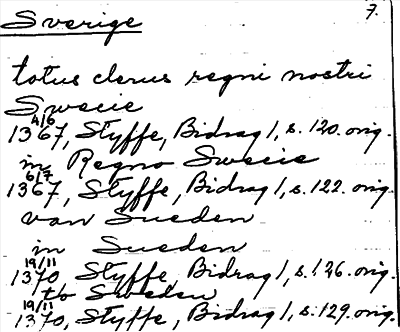 7.
Sverige
totus clerus regni nostri
Swecie
4/6
1367, Styffe, Bidrag 1, s. 120. orig.
in Regno Swecie
6/7
1367, Styffe, Bidrag 1, s. 122. orig.
van Sueden
in Sueden
19/11
1370 Styffe, Bidrag 1, s. 126. orig.
to Sweden
19/11
1370, Styffe, Bidrag 1, s. 129. orig.